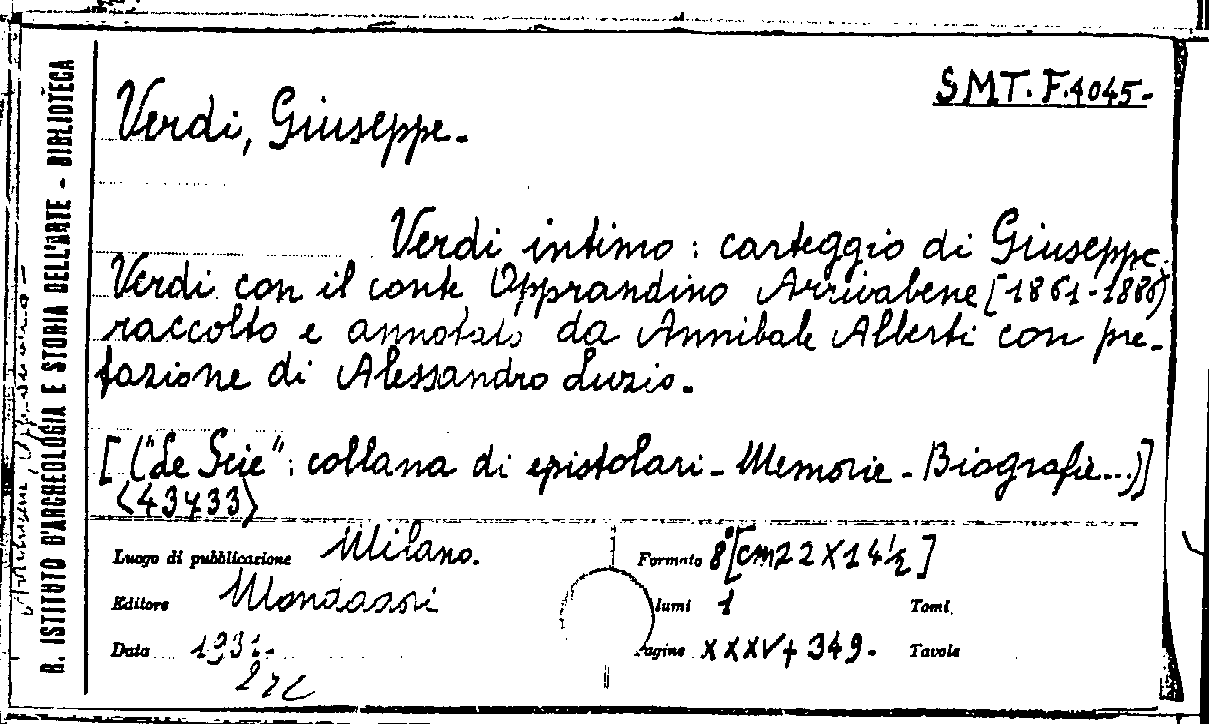 SMT. F.4045-
Verdi, Giuseppe.
Verdi intimo: carteggio di Giuseppe
Verdi con il conte Opprandino Arrivabene [1861-1886)
raccolto e annotato da Annibale Alberti con pre-
fazione di Alessandro Luzio.
[("Le Scie": collana di epistolari - Memorie - Biografie...)]
<43433>
Luogo di pubblicazione Milano. Formato 8º[cm 22 X 14½]
Editore Mondadori lumi 1 Tomi
Data 1931. agine XXXV + 349. Tavole
R. ISTITUTO D'ARCHEOLOGIA E STORIA DELL'ARTE - BIBLIOTECA